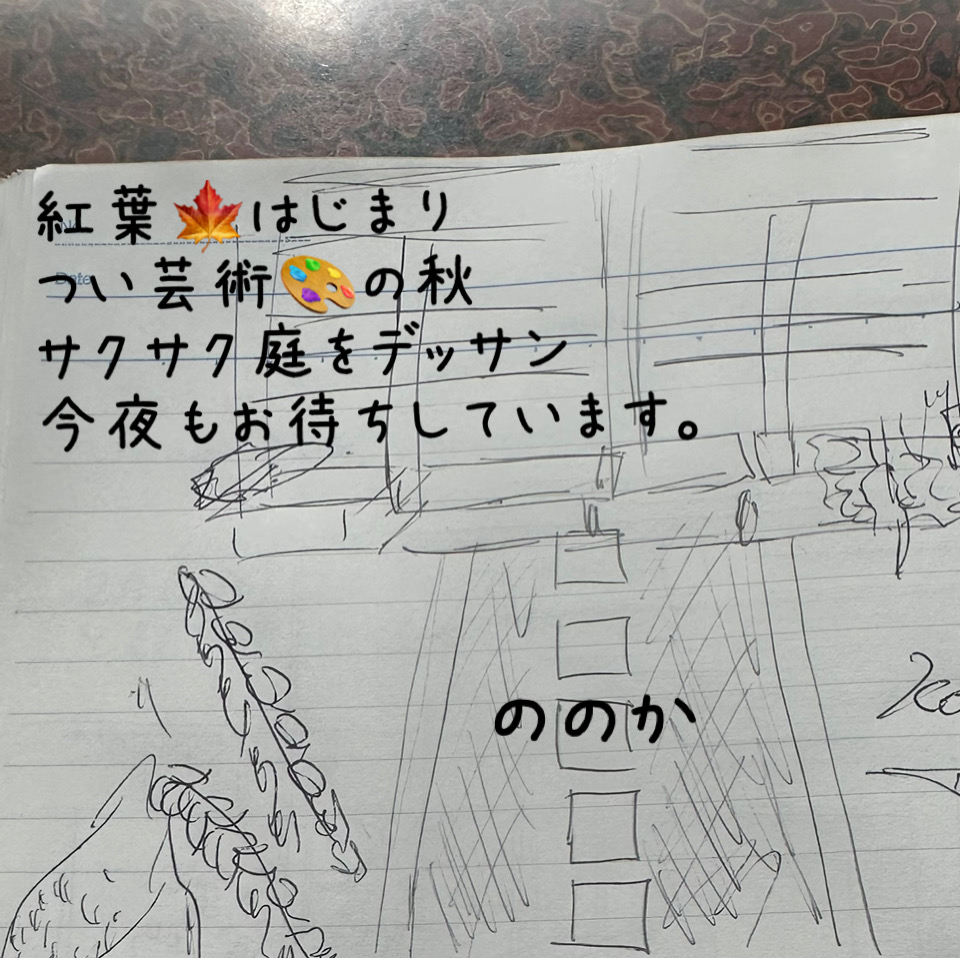 紅葉🍁はじまり
Date
つい芸術🎨の秋
サクサク庭をデッサン
今夜もお待ちしています。
ののか